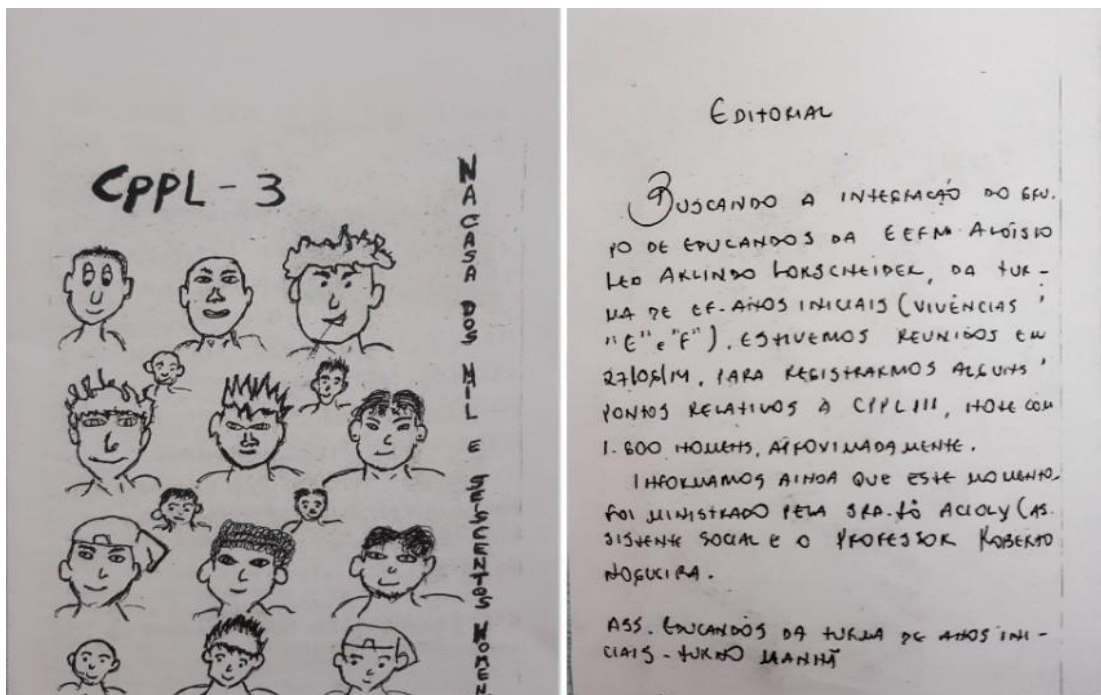 CPPL - 3
NA CASA DOS MIL E SEISCENTOS HOMEN
EDITORIAL
BUSCANDO A INTEGRAÇÃO DO GRU-
PO DE EDUCANDOS DA EEFM ALOÍSIO
LEO ARLINDO LORSCHEIDER, DA TUR-
MA DE EF. ANOS INICIAIS (VIVÊNCIAS '
"E" e "F"), ESTIVEMOS REUNIDOS EM
27/08/14, PARA REGISTRARMOS ALGUNS '
PONTOS RELATIVOS À CPPL III, HOJE COM
1.600 HOMENS, APROXIMADAMENTE.
INFORMAMOS AINDA QUE ESTE MOMENTO
FOI MINISTRADO PELA SRA. ACIOLY (AS-
SISTENTE SOCIAL E O PROFESSOR ROBERTO
NOGUEIRA.
ASS. EDUCANDOS DA TURMA DE ANOS INI-
CIAIS - TURNO MANHÃ